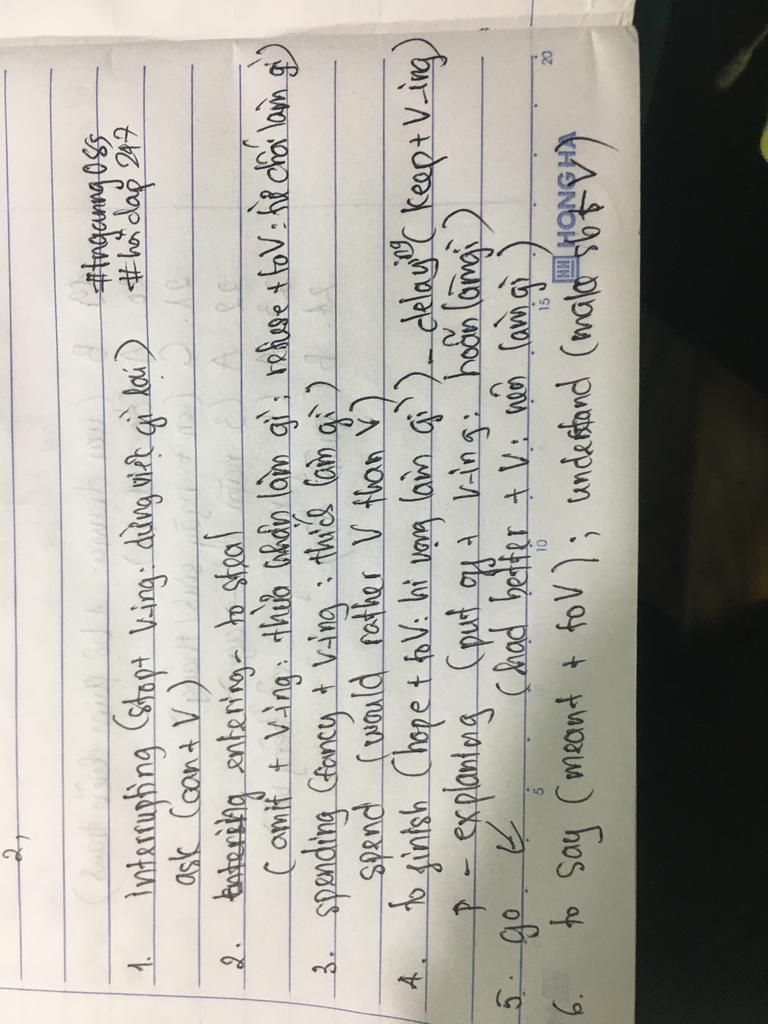 2,
#tnganng088
#hỏi đáp 247
1. interrupting (stop + Ving: dừng việc gì lại)
ask (can + V)
2. entering - to steal
(amit + V-ing: thừa nhận làm gì; refuse + to V: từ chối làm gì)
3. spending (fancy + V-ing: thích làm gì)
spend (would rather V than V)
4. to finish (hope + to V: hi vọng làm gì) - delaying (keep + V-ing)
- explaning (put off + V-ing: hoãn làm gì)
5. go (had better + V: nên làm gì)
6. to say (meant + to V); understand (make sb + V)
5 10 15 20
HH HONG HA